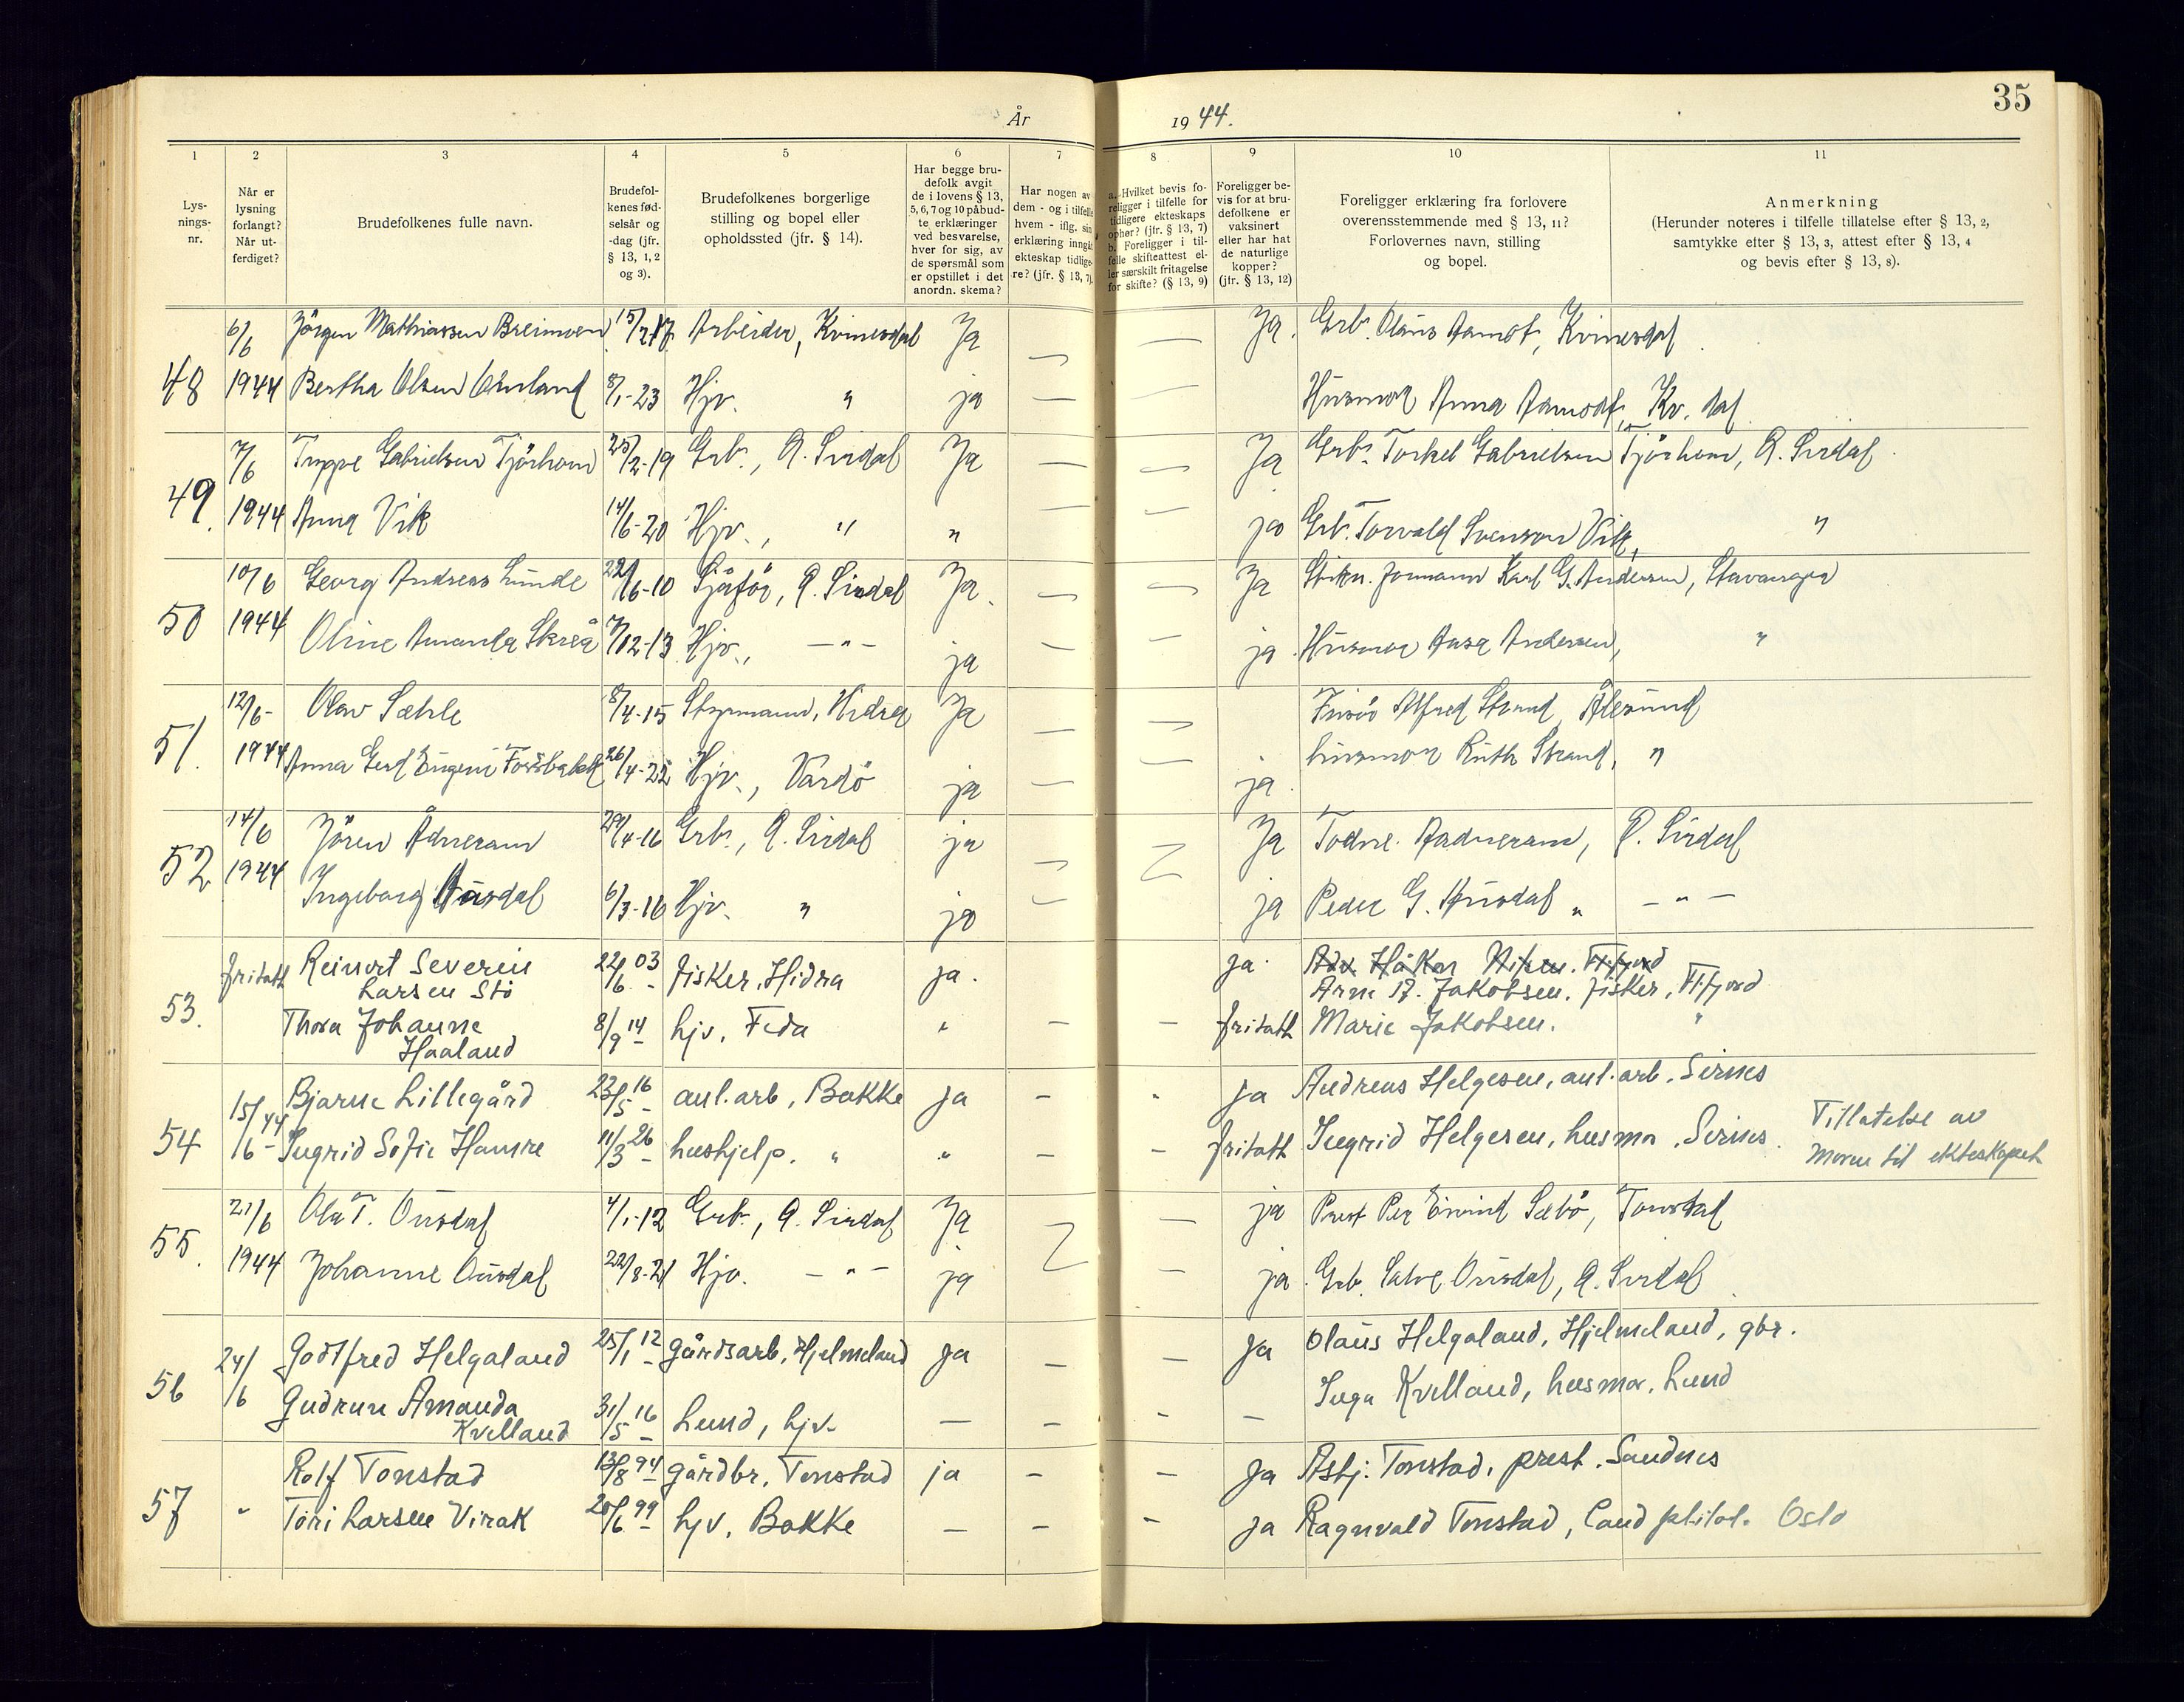 35
År 1944.
1 2 3 4 5 6 7 8 9 10 11
Lysningsnr.
Når er lysning forlangt? Når utferdiget?
Brudefolkenes fulle navn.
Brudefolkenes fødselsår og -dag (jfr. § 13, 1, 2 og 3).
Brudefolkenes borgerlige stilling og bopel eller opholdssted (jfr. § 14).
Har begge brudefolk avgit de i lovens § 13, 5, 6, 7 og 10 påbudte erklæringer ved besvarelse, hver for sig, av de spørsmål som er opstillet i det anordn. skema?
Har nogen av dem - og i tilfelle hvem - iflg. sin erklæring inngått ekteskap tidligere? (jfr. § 13, 7).
a. Hvilket bevis foreligger i tilfelle for tidligere ekteskaps ophør? (jfr. § 13, 7) b. Foreligger i tilfelle skifteattest eller særskilt fritagelse for skifte? (§ 13, 9)
Foreligger bevis for at brudefolkene er vaksinert eller har hat de naturlige kopper? (jfr. § 13, 12)
Foreligger erklæring fra forlovere overensstemmende med § 13, 11? Forlovernes navn, stilling og bopel.
Anmerkning (Herunder noteres i tilfelle tillatelse efter § 13, 2, samtykke efter § 13, 3, attest efter § 13, 4 og bevis efter § 13, 8).
48 6/6 Jörgen Mathiassen Breimoen 15/2-17 Arbeider, Kvinesdal Ja — — Ja. Grb. Olaus Aamot, Kvinesdal
1944 Bertha Olsen 8/1-23 Hjv. " ja — — Husmor Anna Aamodt, Kv. dal
49. 7/6 Trygve Gabrielsen Tjörhom 25/2-19 Grb., Ø. Sirdal Ja — — Ja Grb. Torkel Gabrielsen Tjörhom, Ø. Sirdal.
1944 Anna Vik 14/6-20 Hjv., " " — — ja Grb. Torvald Svenson Vik, "
50 10/6 Georg Andreas Lunde 22/6-10 Sjåför, Ø. Sirdal Ja. — — Ja Karl G. Andersen, Stavanger
1944 Oline Amanda Skreå 7/12-13 Hjv., — " — ja — ja Husmor Aasa Andersen, "
51. 12/6- Olav Sæhle 8/4-15 Styrmann, Hidra Ja — — Frisör Alfred Strand, Ålesund
1944 Anna Gerd Eugenie Forsbakk 26/4-22 Hjv., Vardö ja — — ja. husmor Ruth Strand, "
52 14/6 Jören Ådneram 29/4-16 Grb., Ø. Sirdal ja — — Ja Todne Aadneram, Ø. Sirdal
1944 Ingeborg Husdal 6/3-16 Hjv. " ja — — ja Peder G. Husdal " — " —
53. fritatt Reinert Severin 22/6 03 - fisker, Hidra ja. ja. Adv. Håkon
Larsen Stö Arne B. Jakobsen, fisker, Flifjord
Thora Johanne 8/9 14 - hjv, Feda " — — fritatt Marie Jakobsen. "
Haaland
54 15/6 - 44 Bjarne Lillegård 23/5 16 - anl. arb, Bakke ja — - ja Andreas Helgesen, anl. arb. Sirnes
Ingrid Sofie Hamre 11/3 26 - hushjelp. " " — - fritatt Ingrid Helgesen, husmor, Sirnes. Tillatelse av
moren til ekteskapet
55. 21/6 Ola T. Ousdal 4/1-12 Grb., Ø. Sirdal Ja — ja Prest Per Eivind Sæbö, Tonstad
1944 Johanne Ousdal 22/8-21 Hjv. — " — ja — ja Grb. Salve Ousdal, Ø. Sirdal
56 24/6 Godtfred Helgaland 25/1 12 - gårdsarb, Hjelmeland ja — — ja Olaus Helgaland, Hjelmeland, gbr.
Gudrun Amanda 31/5 16 - Lund, hjv. — — - — Inga Kvelland, husmor, Lund
Kvelland
57 " Rolf Tonstad 13/8 94 - gårdbr, Tonstad ja — — ja Asbj. Tonstad, prest. Sandnes
Tori Larsen Virak 20/6 99 - hjv, Bakke — — - ja Ragnvald Tonstad, Cand philol. Oslo